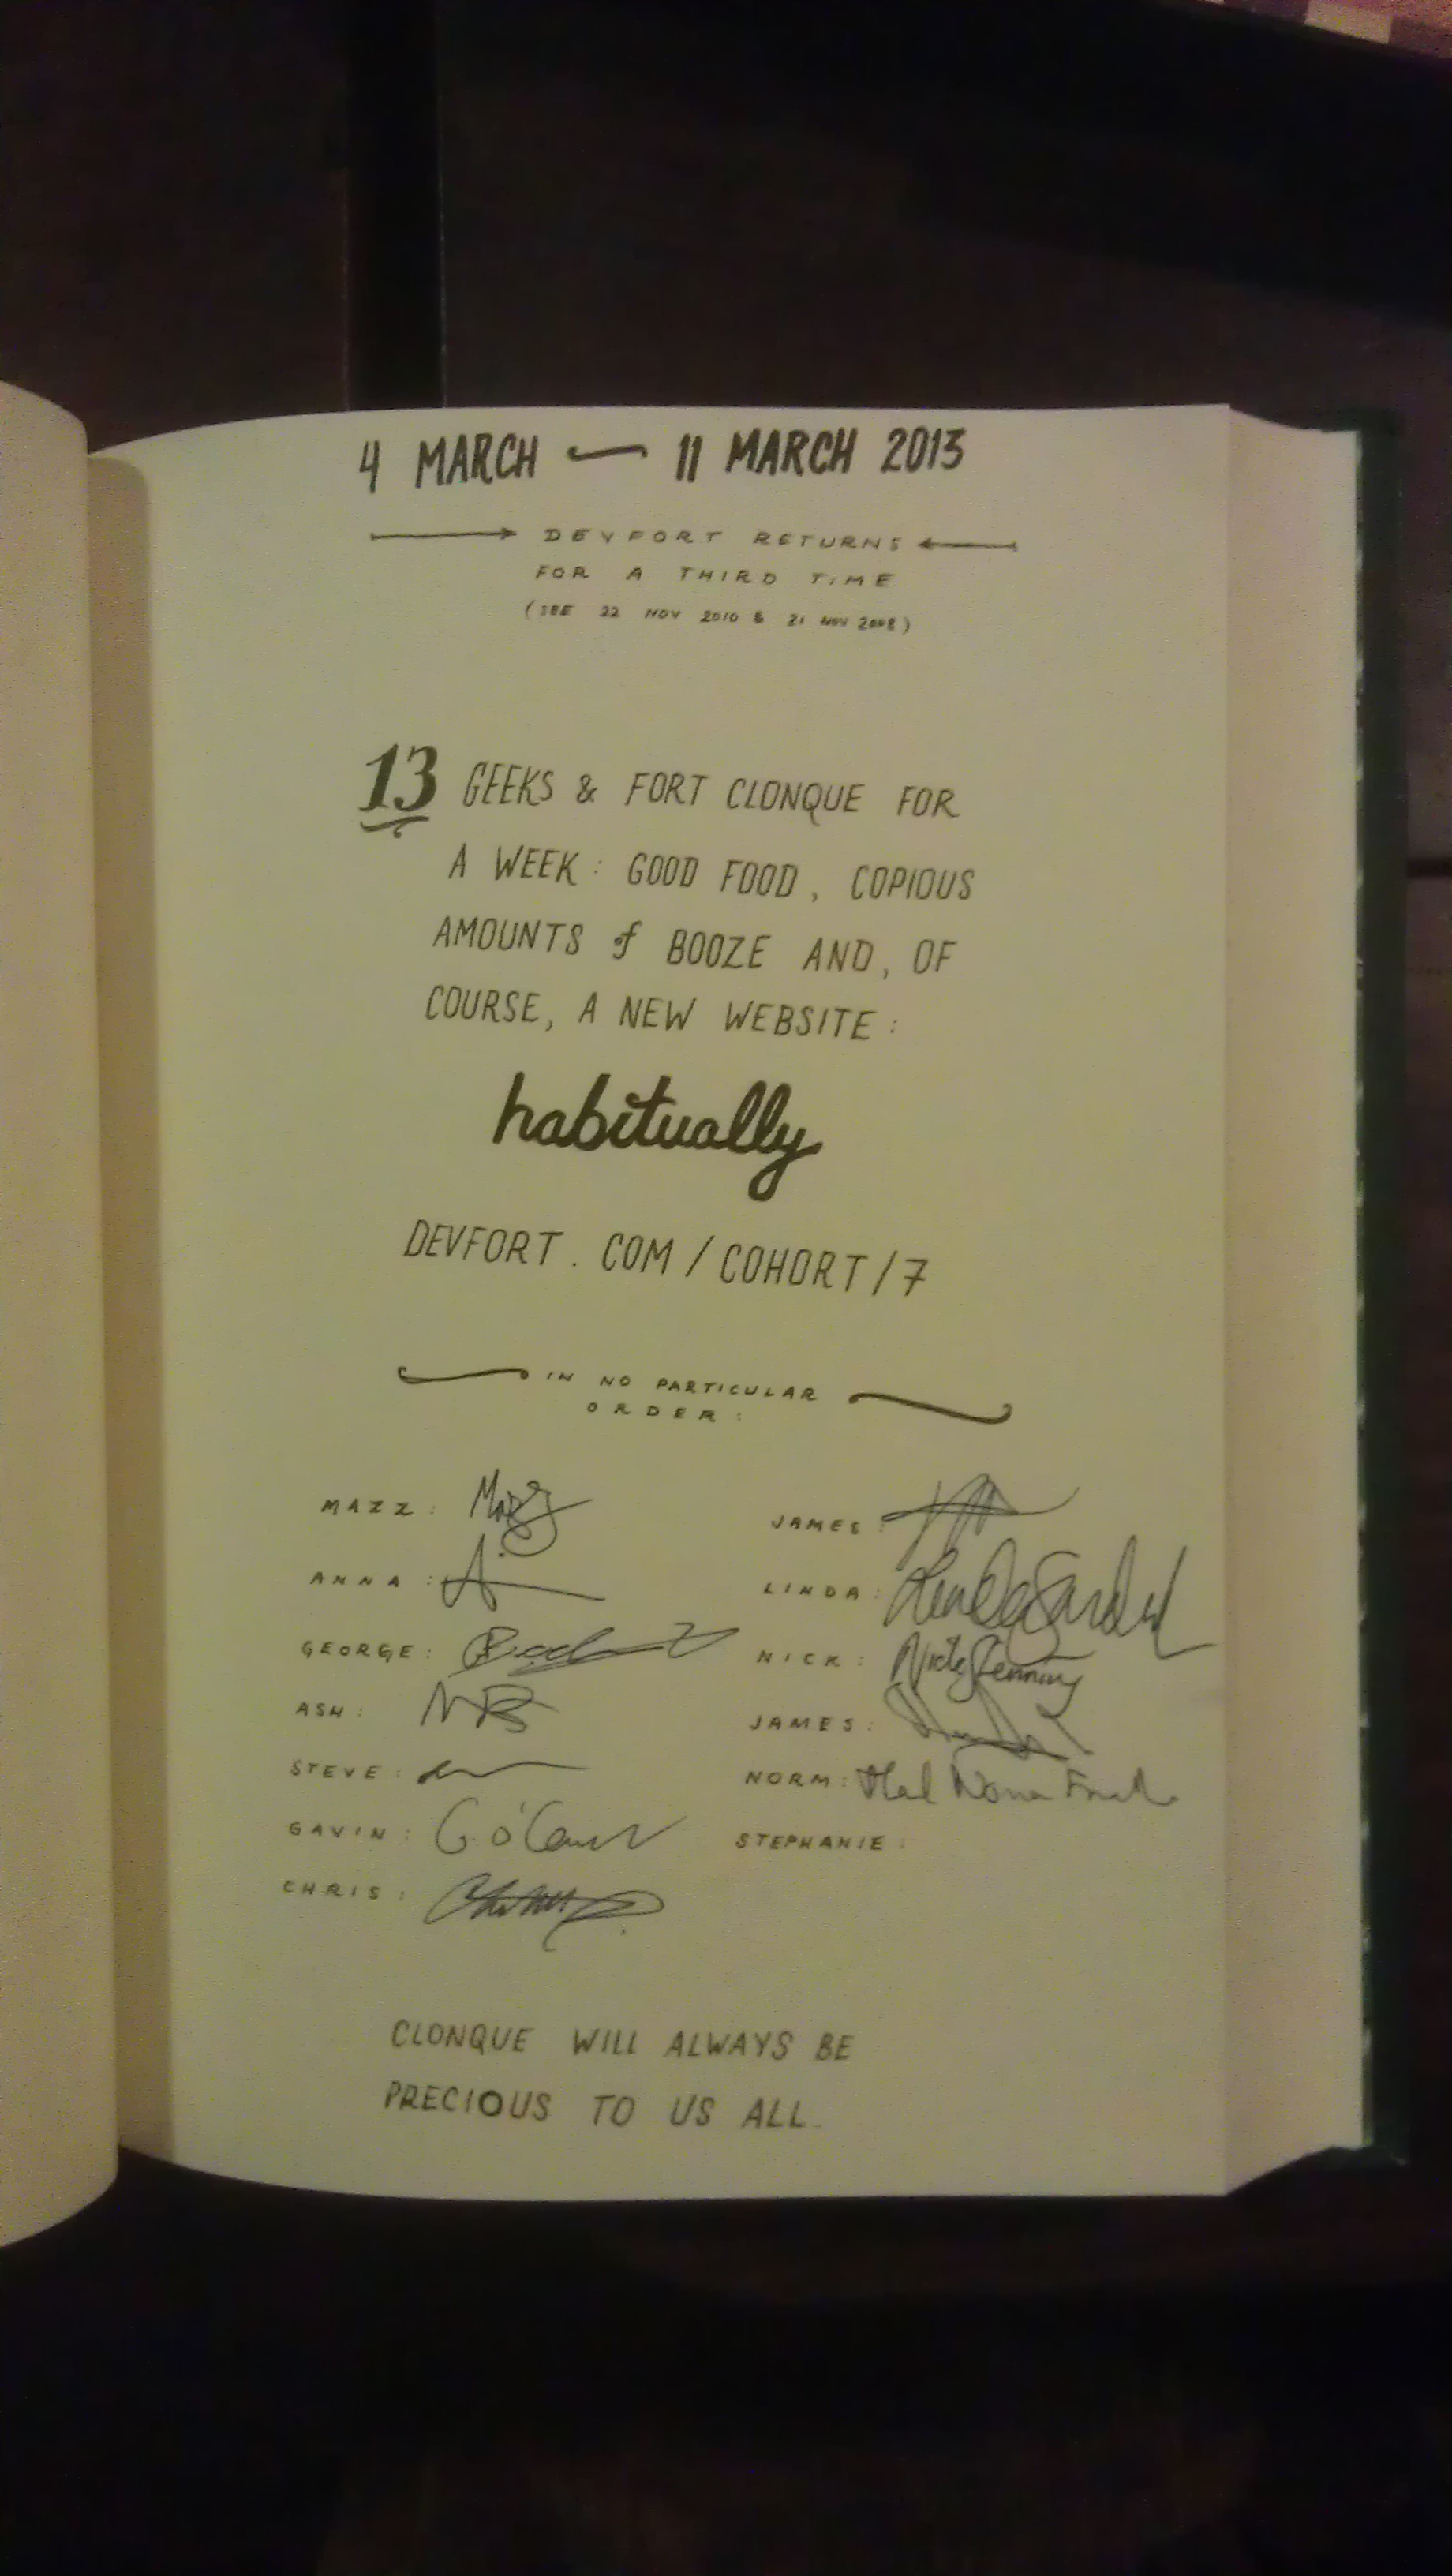 4 MARCH — 11 MARCH 2013
DEVFORT RETURNS
FOR A THIRD TIME
(SEE 22 NOV 2010 & 21 NOV 2008)
13 GEEKS & FORT CLONQUE FOR
A WEEK: GOOD FOOD, COPIOUS
AMOUNTS of BOOZE AND, OF
COURSE, A NEW WEBSITE:
habitually
DEVFORT.COM/COHORT/7
IN NO PARTICULAR
ORDER:
MAZZ:
ANNA:
GEORGE:
ASH:
STEVE:
GAVIN:
CHRIS:
JAMES:
LINDA:
NICK: Nick
JAMES:
NORM:
STEPHANIE:
CLONQUE WILL ALWAYS BE
PRECIOUS TO US ALL.